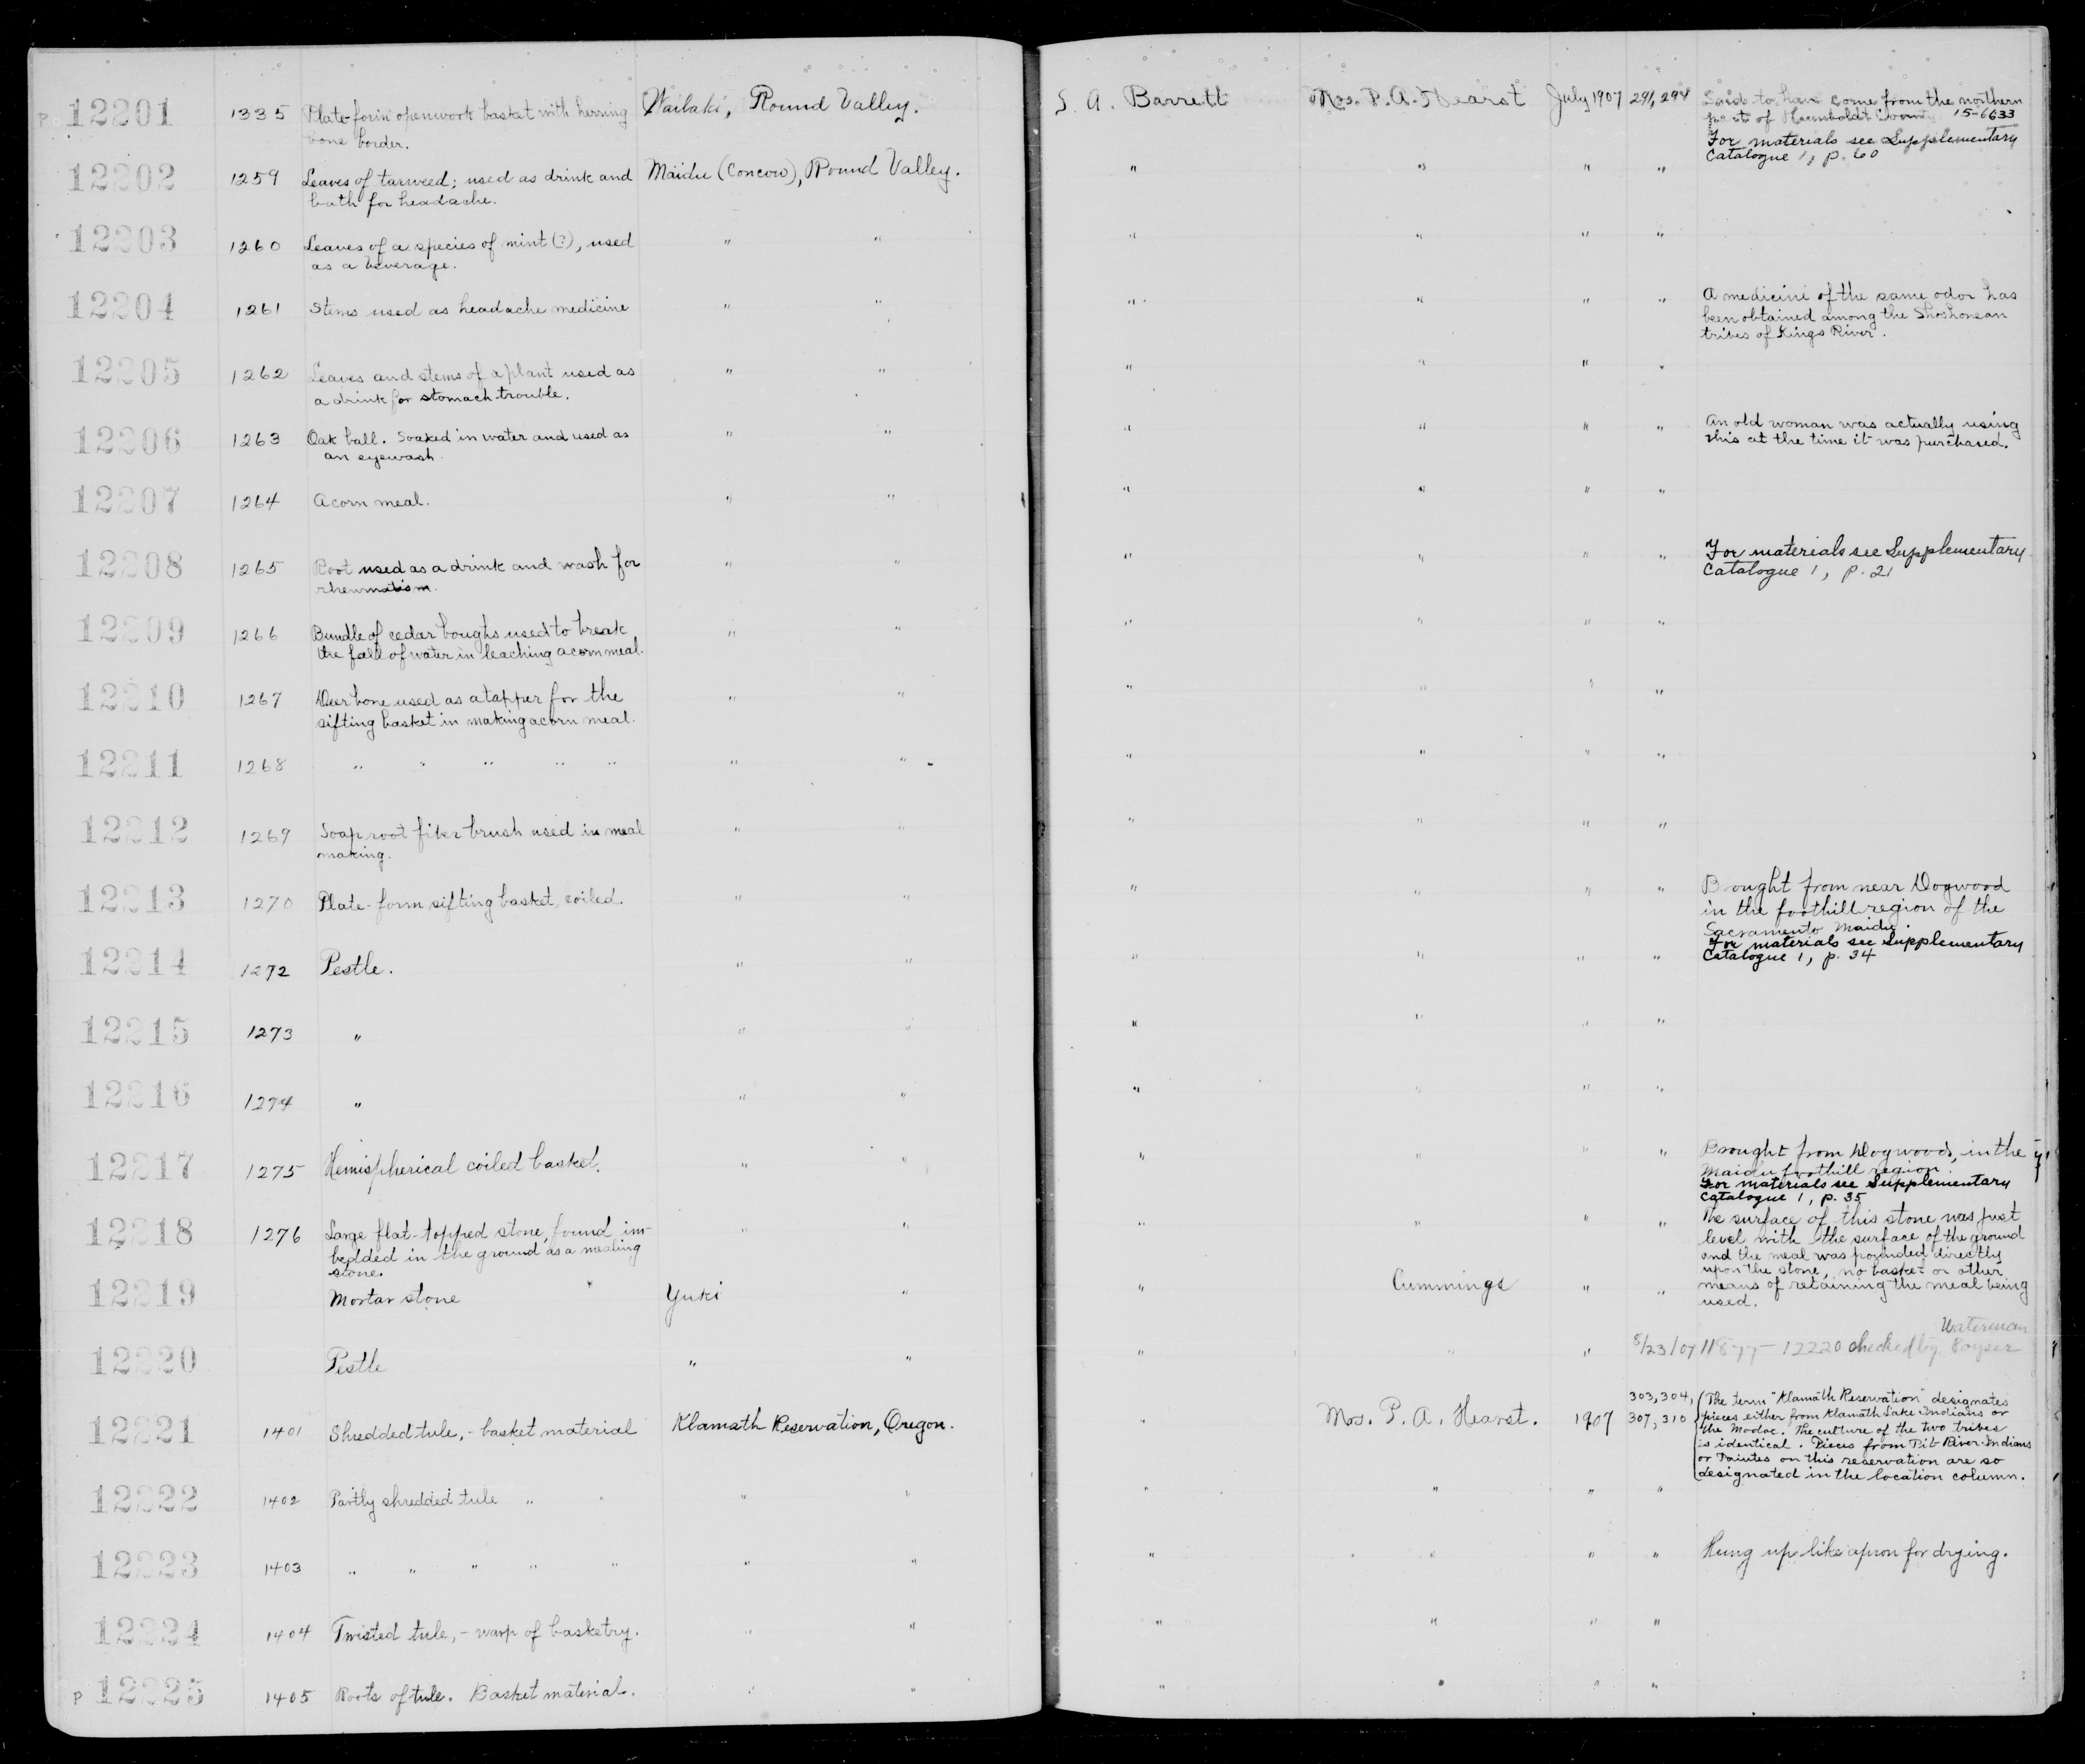 12201 1335 Plate-form openwork basket with herring Wailaki, Round Valley. S. A. Barrett Mrs. P. A. Hearst July 1907 291, 294 Said to have come from the northern
bone border. part of Humboldt County 15-6633
For materials see Supplementary
Catalogue 1, p. 60
12202 1259 Leaves of tarweed; used as drink and Maidu (Concow), Round Valley. " " " "
bath for headache.
12203 1260 Leaves of a species of mint (?), used " " " " " "
as a beverage.
12204 1261 Stems used as headache medicine " " " " " " A medicine of the same odor has
been obtained among the Shoshonean
tribes of Kings River.
12205 1262 Leaves and stems of a plant used as " " " " " "
a drink for stomach trouble.
12206 1263 Oak ball. Soaked in water and used as " " " " " " An old woman was actually using
an eyewash. this at the time it was purchased.
12207 1264 Acorn meal. " " " " " "
12208 1265 Root used as a drink and wash for " " " " " " For materials see Supplementary
rheumatism. Catalogue 1, p. 21
12209 1266 Bundle of cedar boughs used to break " " " " " "
the fall of water in leaching acorn meal.
12210 1267 Deer bone used as a tapper for the " " " " " "
sifting basket in making acorn meal.
12211 1268 " " " " " " " " " " "
12212 1269 Soap root fiber brush used in meal " " " " " "
making.
12213 1270 Plate-form sifting basket, coiled. " " " " " " Brought from near Dogwood
in the foothill region of the
Sacramento Maidu.
For materials see Supplementary
Catalogue 1, p. 34
12214 1272 Pestle. " " " " " "
12215 1273 " " " " " " "
12216 1274 " " " " " " "
12217 1275 Hemispherical coiled basket. " " " " " " Brought from Dogwood, in the
Maidu foothill region.
For materials see Supplementary
Catalogue 1, p. 35
12218 1276 Large flat-topped stone, found im- " " " " " " The surface of this stone was just
bedded in the ground as a mealing level with the surface of the ground
stone. and the meal was pounded directly
upon the stone, no basket or other
means of retaining the meal being
used.
12219 Mortar stone Yuki " " Cummings " "
12220 Pestle " " " " " 5/23/07 11877-12220 checked by Waterman
12221 1401 Shredded tule, - basket material Klamath Reservation, Oregon. " Mrs. P. A. Hearst. 1907 303, 304,
307, 310 The term "Klamath Reservation" designates
pieces either from Klamath Lake Indians or
the Modoc. The culture of the two tribes
is identical. Pieces from Pit River Indians
or Paiutes on this reservation are so
designated in the location column.
12222 1402 Partly shredded tule " " " " " " " "
12223 1403 " " " " " " " " " " " Hung up like apron for drying.
12224 1404 Twisted tule, - warp of basketry. " " " " " "
12225 1405 Roots of tule. Basket material. " " " " " "